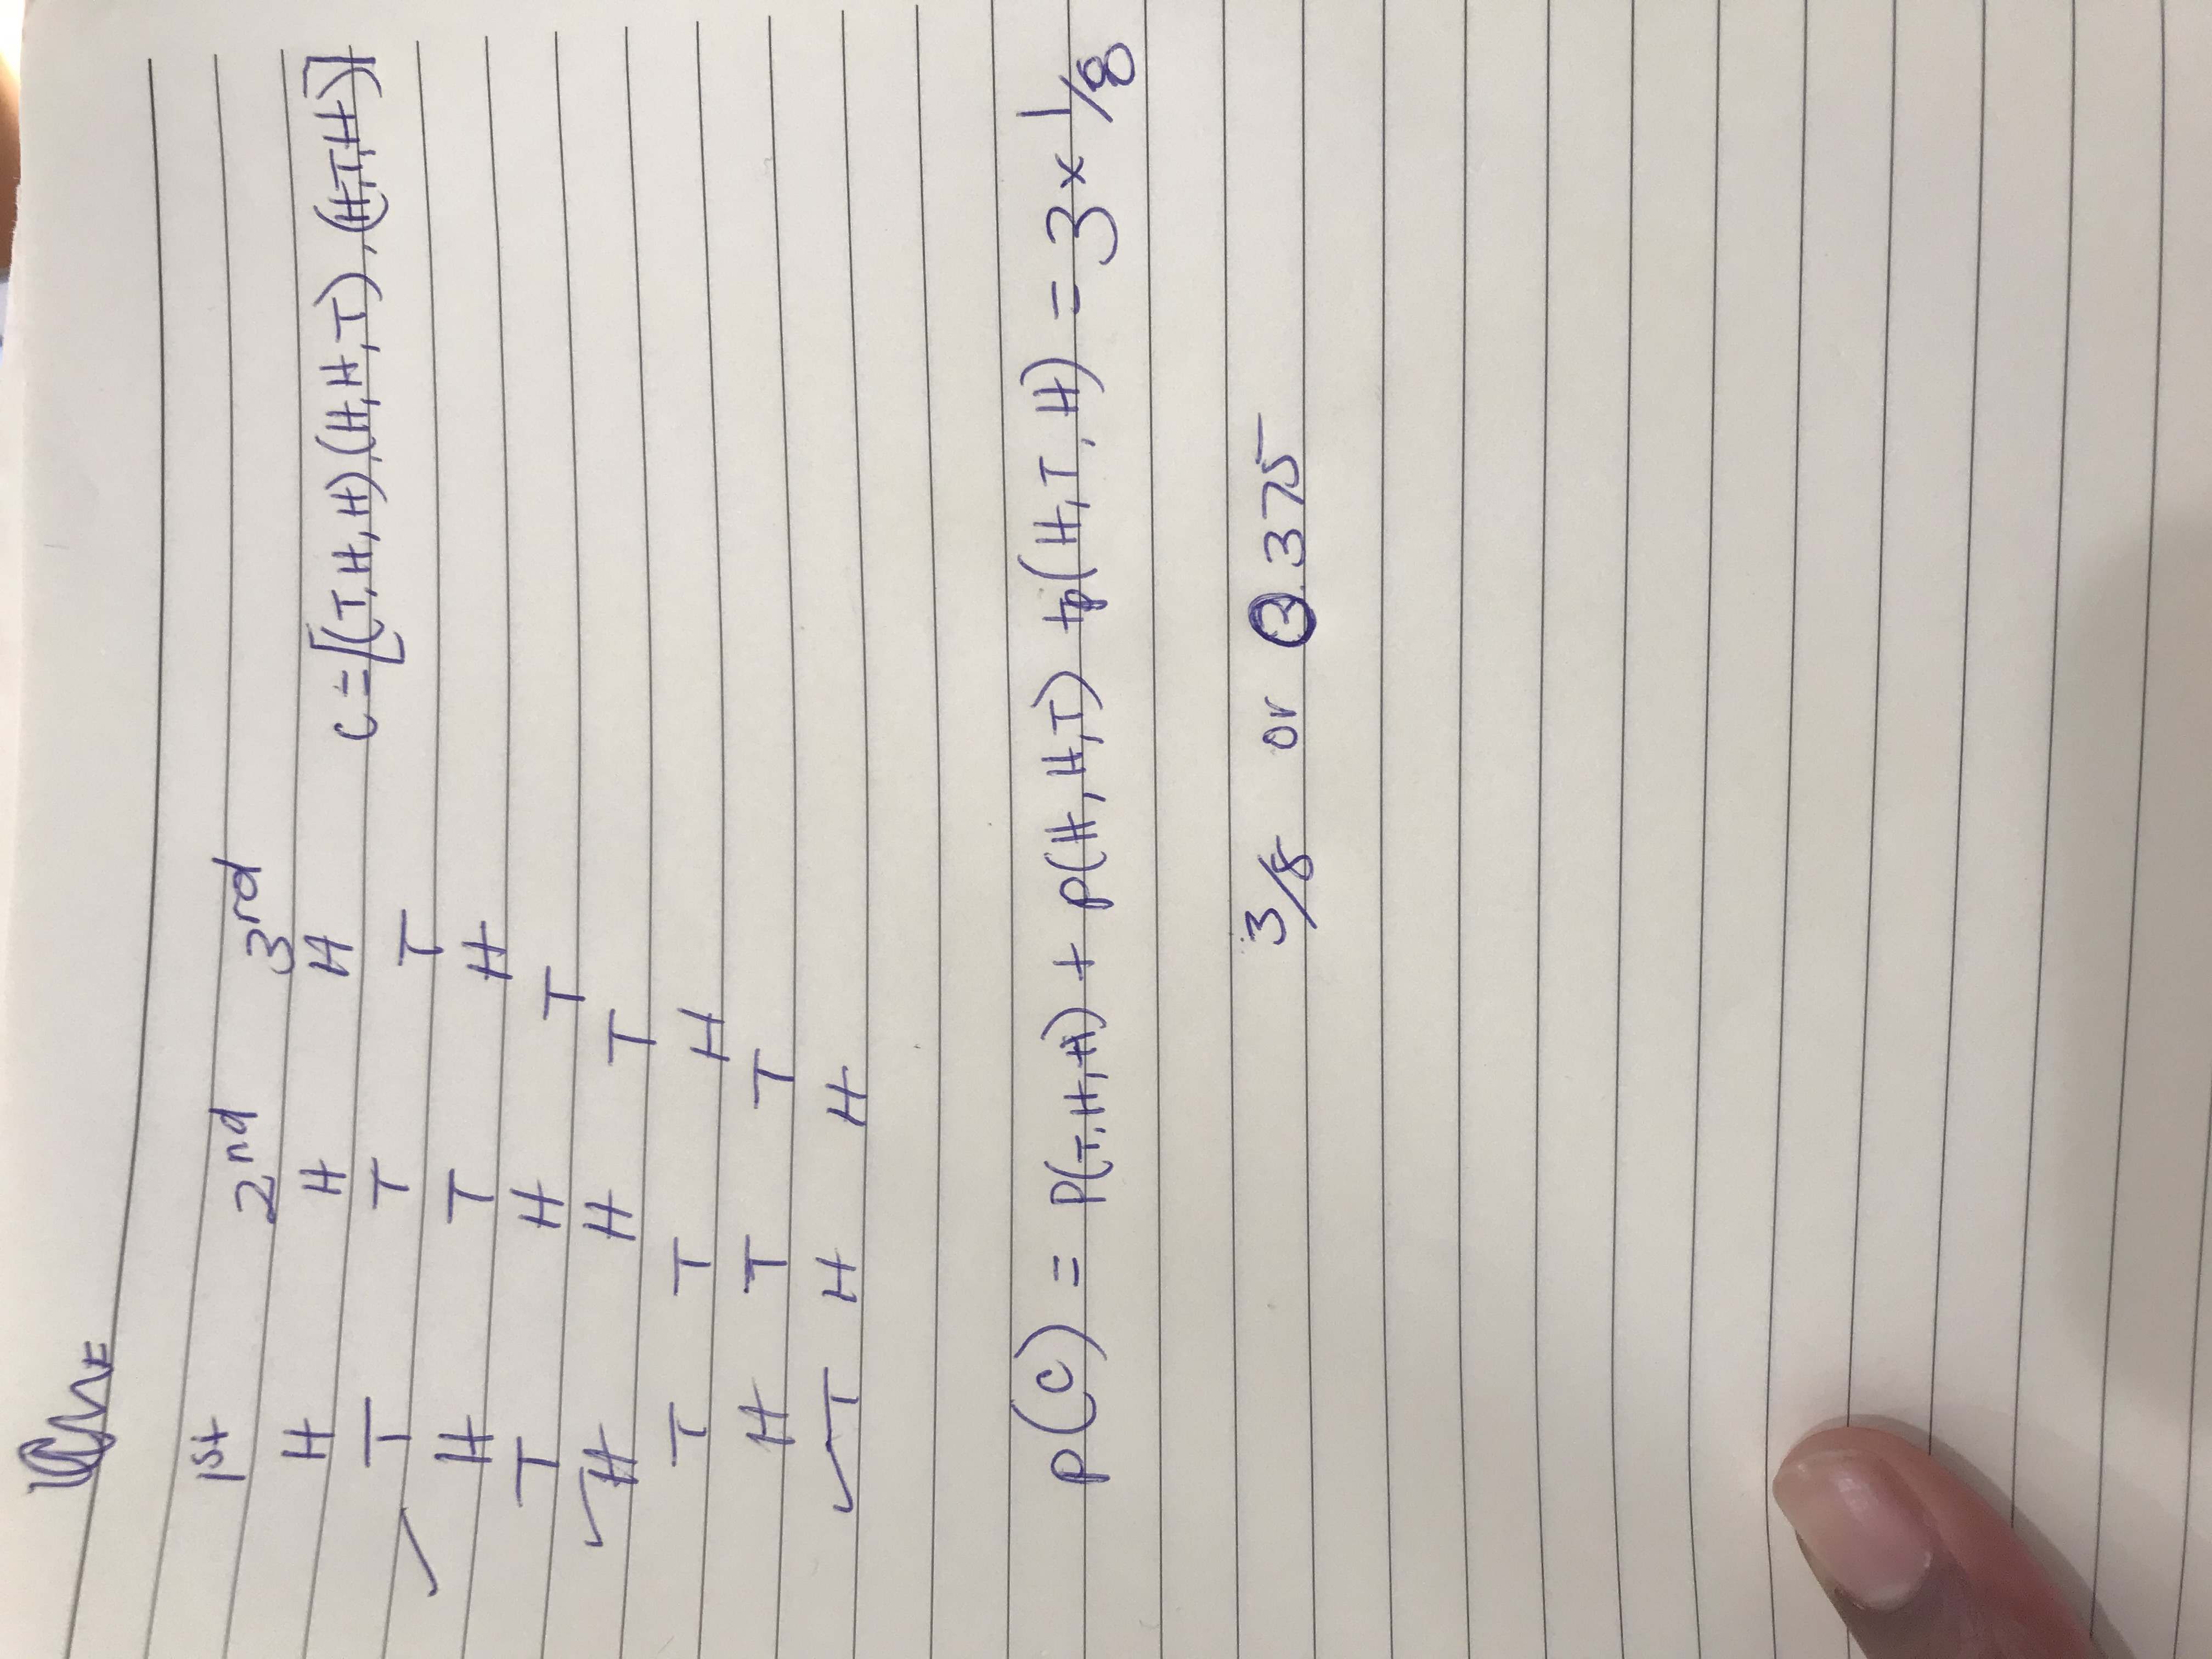 1st 2nd 3rd
H H H C = [(T,H,H),(H,H,T),(H,T,H)]
T T T
✓ H T H
T H T
✓ H H T
T T H
H T T
✓ T H H
P(C) = P(T,H,H) + P(H,H,T) + P(H,T,H) = 3 × 1/8
3/8 or 0.375